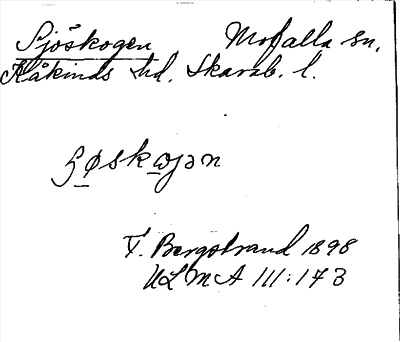 Sjöskogen Mofalla sn,
Kåkinds hd, Skarab. l.
ʃøskωjən
F. Bergstrand 1898
ULMA III:173